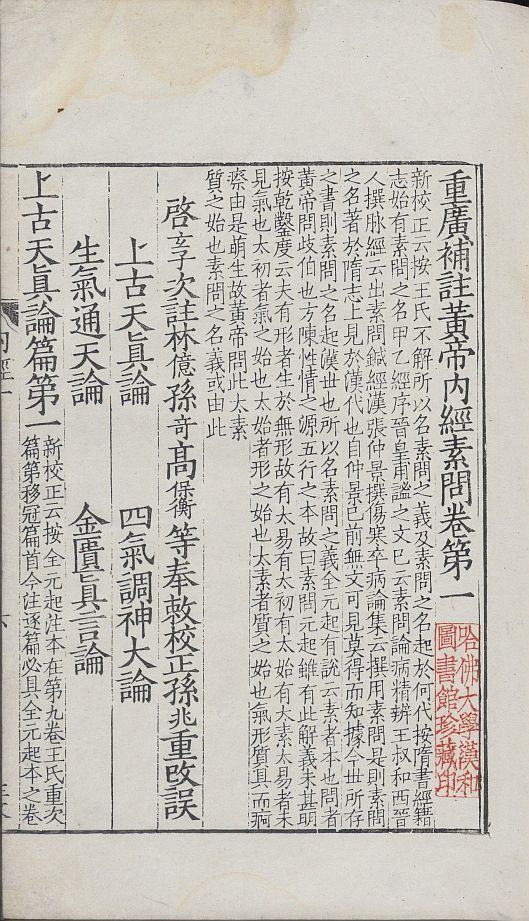 重廣補註黃帝內經素問卷第一
哈佛大學漢和
圖書館珍藏印
新校正云按王氏不解所以名素問之義及素問之名起於何代按隋書經籍
志始有素問之名甲乙經序晉皇甫謐之文已云素問論病精辨王叔和西晉
人撰脉經云出素問鍼經漢張仲景撰傷寒卒病論集云撰用素問是則素問
之名著於隋志上見於漢代也自仲景已前無文可見莫得而知據今世所存
之書則素問之名起漢世也所以名素問之義全元起有說云素者本也問者
黃帝問歧伯也方陳性情之源五行之本故曰素問元起雖有此解義未甚明
按乾鑿度云夫有形者生於無形故有太易有太初有太始有太素太易者未
見氣也太初者氣之始也太始者形之始也太素者質之始也氣形質具而痾
瘵由是萌生故黃帝問此太素
質之始也素問之名義或由此
啓玄子次註林億孫竒高保衡等奉敕校正孫兆重改誤
上古天眞論 四氣調神大論
生氣通天論 金匱眞言論
上古天眞論篇第一
新校正云按全元起注本在第九卷王氏重次
篇第移冠篇首今注逐篇必具全元起本之卷